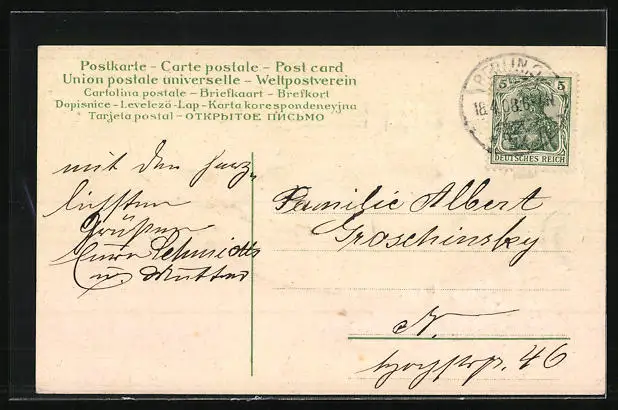 Postkarte – Carte postale – Post card
Union postale universelle – Weltpostverein
Cartolina postale – Briefkaart – Brefkort
Dopisnice – Levelező-Lap – Karta korespondencyjna
Tarjeta postal – ОТКРЫТОЕ ПИСЬМО
BERLIN
18.4.08.
5 5
DEUTSCHES REICH
mit den herz-
lichsten
Grüßen
Eure Schmidts
u. Mutter
Familie Albert
Groschinsky
N.
46